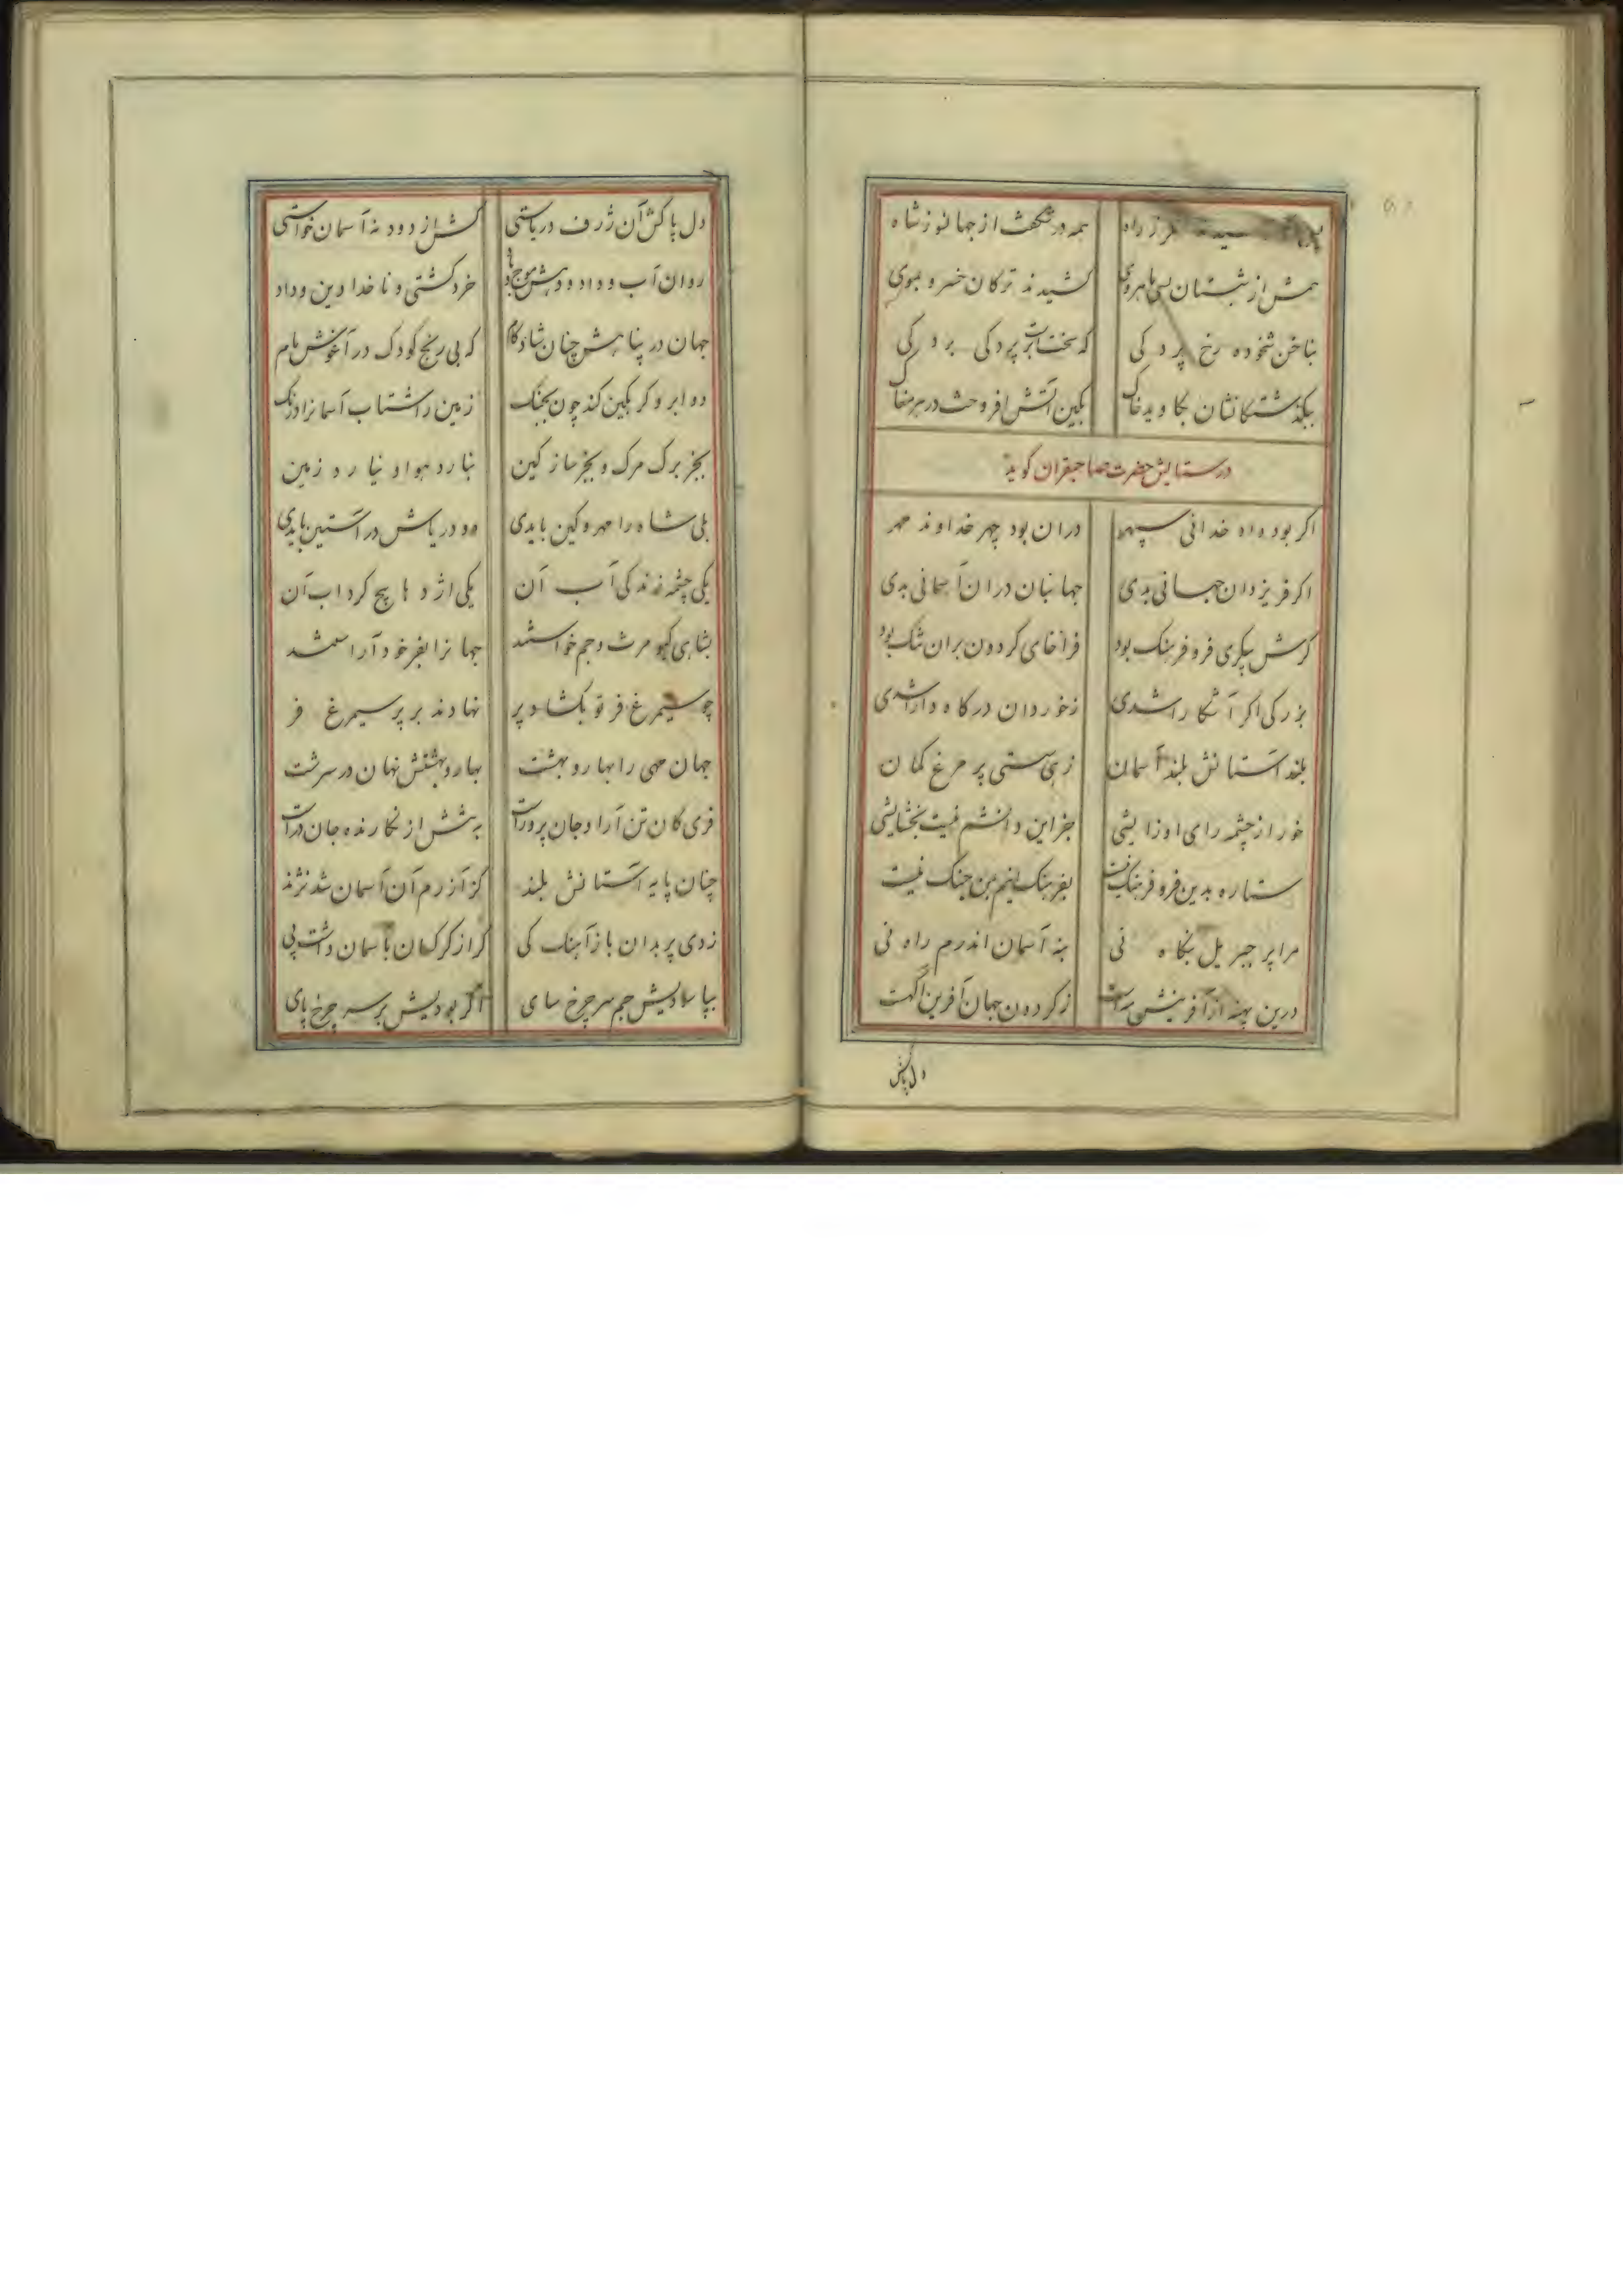 همه در شگفت از جهانسوز شاه
همش از شبستان بسی ماهروی کشیدند ترکان خسرو بموی
بناخن شخوده رخ پردکی که سخت است بر پردکی بردکی
بکذشتکانشان بجاوید خاک بکین آتش افروخت در هر مغاک
در ستایش حضرت صاحبقران کوید
اکر بود داد خدائی سپهر دران بود چهر خداوند مهر
اکر فر یزدان جهانی بدی جهانبان دران آسمانی بدی
کرش پیکری فر و فرهنک بود فراخای کردون بران تنک بود
بزرکی اکر آشکارا شدی ز خوردان درکاه دارا شدی
بلند آستانش بلند آسمان زهی سستی پر مرغ کمان
خور از چشمه رای او زایشی جز این دانشم نیست بخشایشی
ستاره بدین فر و فرهنک نیست بفرهنک بینم من جنک نیست
مرا پر جبریل بنکاه نی به آسمان اندرم راه نی
درین پهنه از آفرینش ز کردون جهان آفرین
دل پاکش
دل پاکش آن ژرف دریاستی کش از دود نه آسمان خواستی
روان آب و داد و دهش موج باد خرد کشتی و ناخدا دین و داد
جهان در پناهش چنان شادکام که بی رنج کودک در آغوش مام
دو ابرو کر بکین کند چون بجنک زمین را شتاب آسمانرا درنک
بجز برک مرک و بجز ساز کین نبارد هوا و نیارد زمین
بلی شاه را مهر و کین بایدی دو دریاش در آستین بایدی
یکی چشمه زندکی آب آن یکی اژدها پیچ کرداب آن
بشاهی کیومرث و جم خواستند جهانرا بفر خود آراستند
چو سیمرغ فر تو بکشاد پر نهادند بر پر سیمرغ فر
جهان مهی را بهار و بهشت بهار و بهشتش نهان در سرشت
فری کان تن آرا و جان پرور است پرستش از نکارنده جان در است
چنان پایه آستانش بلند کز آزرم آن آسمان شد نژند
زدی پر بدان باز آهنک کی کر از کرکسان باسمان داشت پی
بپا سادیش جم سر چرخ سای اکر بودیش بر سر چرخ پای